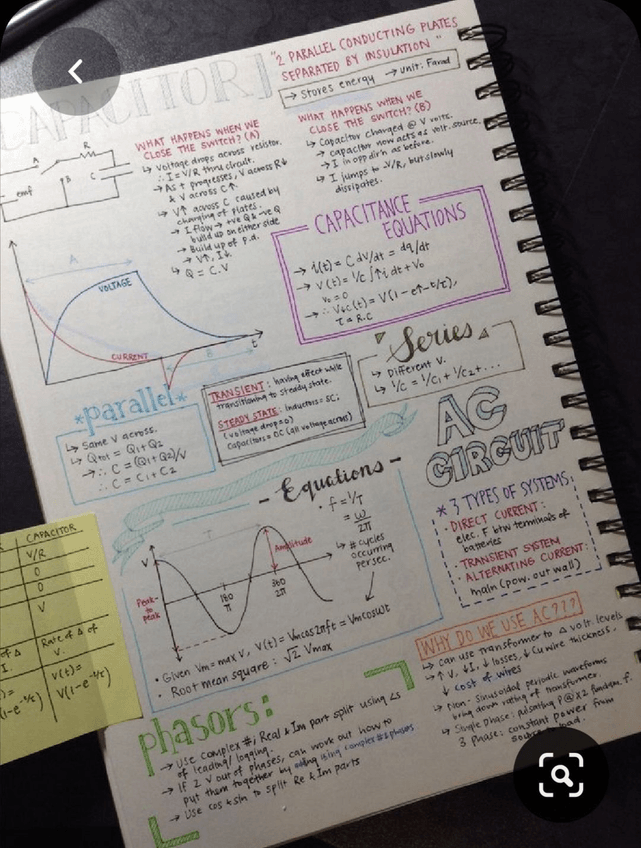 CAPACITOR
"2 PARALLEL CONDUCTING PLATES
SEPARATED BY INSULATION"
→ Stores energy → unit: Farad
A
R
B
C
emf
WHAT HAPPENS WHEN WE
CLOSE THE SWITCH? (A)
↳ Voltage drops across resistor.
∴ I = V/R thru circuit.
→ As t progresses, V across R↓
& V across C↑.
↳ V↑ across C caused by
charging of plates.
→ I flow → +ve Q & -ve Q
build up on either side
→ Build up of p.d.
→ V↑, I↓
↳ Q = C.V
WHAT HAPPENS WHEN WE
CLOSE THE SWITCH? (B)
↳ Capacitor charged @ V volts.
→ capacitor now acts as volt. source.
→ I in opp dirh as before.
↳ I jumps to -V/R, but slowly
dissipates.
CAPACITANCE
EQUATIONS
→ i(t) = C dv/dt = dq/dt
→ V(t) = 1/C ∫↑i dt + V₀
V₀ = 0
→ ∴ V↓c(t) = V(1 - e↑-t/τ),
τ = R.C
A
VOLTAGE
CURRENT
B
t
*parallel*
↳ Same V across.
↳ Qtot = Q1 + Q2
→ ∴ C = (Q1+Q2)/V
∴ C = C1 + C2
TRANSIENT: having effect while
transitioning to steady state.
STEADY STATE: Inductors = SC;
(voltage drop = 0)
Capacitors = OC (all voltage across)
Series
↳ Different V.
↳ 1/C = 1/C1 + 1/C2 + ...
AC
CIRCUIT
- Equations -
• f = 1/T
= ω/2π
↳ # cycles
occurring
per sec.
V
T
Amplitude
Peak-
to
peak
180
π
360
2π
• Given Vm = max V, V(t) = Vm cos2πft = Vm cosωt
• Root mean square: √2 Vmax
* 3 TYPES OF SYSTEMS:
• DIRECT CURRENT:
elec. F btw terminals of
batteries
• TRANSIENT SYSTEM
• ALTERNATING CURRENT:
main (pow. out wall)
WHY DO WE USE AC???
↳ can use transformer to Δ volt. levels
↳ ↑V, ↓I, ↓ losses, ↓ Cu wire thickness.
↓ cost of wires
→ Non-Sinusoidal periodic waveforms
bring down rating of transformer.
↳ Single phase: P @ x2 f.
3 phase: constant power from
source
phasors:
→ Use complex #; Real & Im part split using ∠s
of leading/lagging.
→ If 2 V out of phases, can work out how to
put them together by using complex #s & phases
→ Use cos & sin to split Re & Im parts
CAPACITOR
V/R
0
0
V
Rate of Δ of
V.
V(t) =
V(1-e^-t/τ)